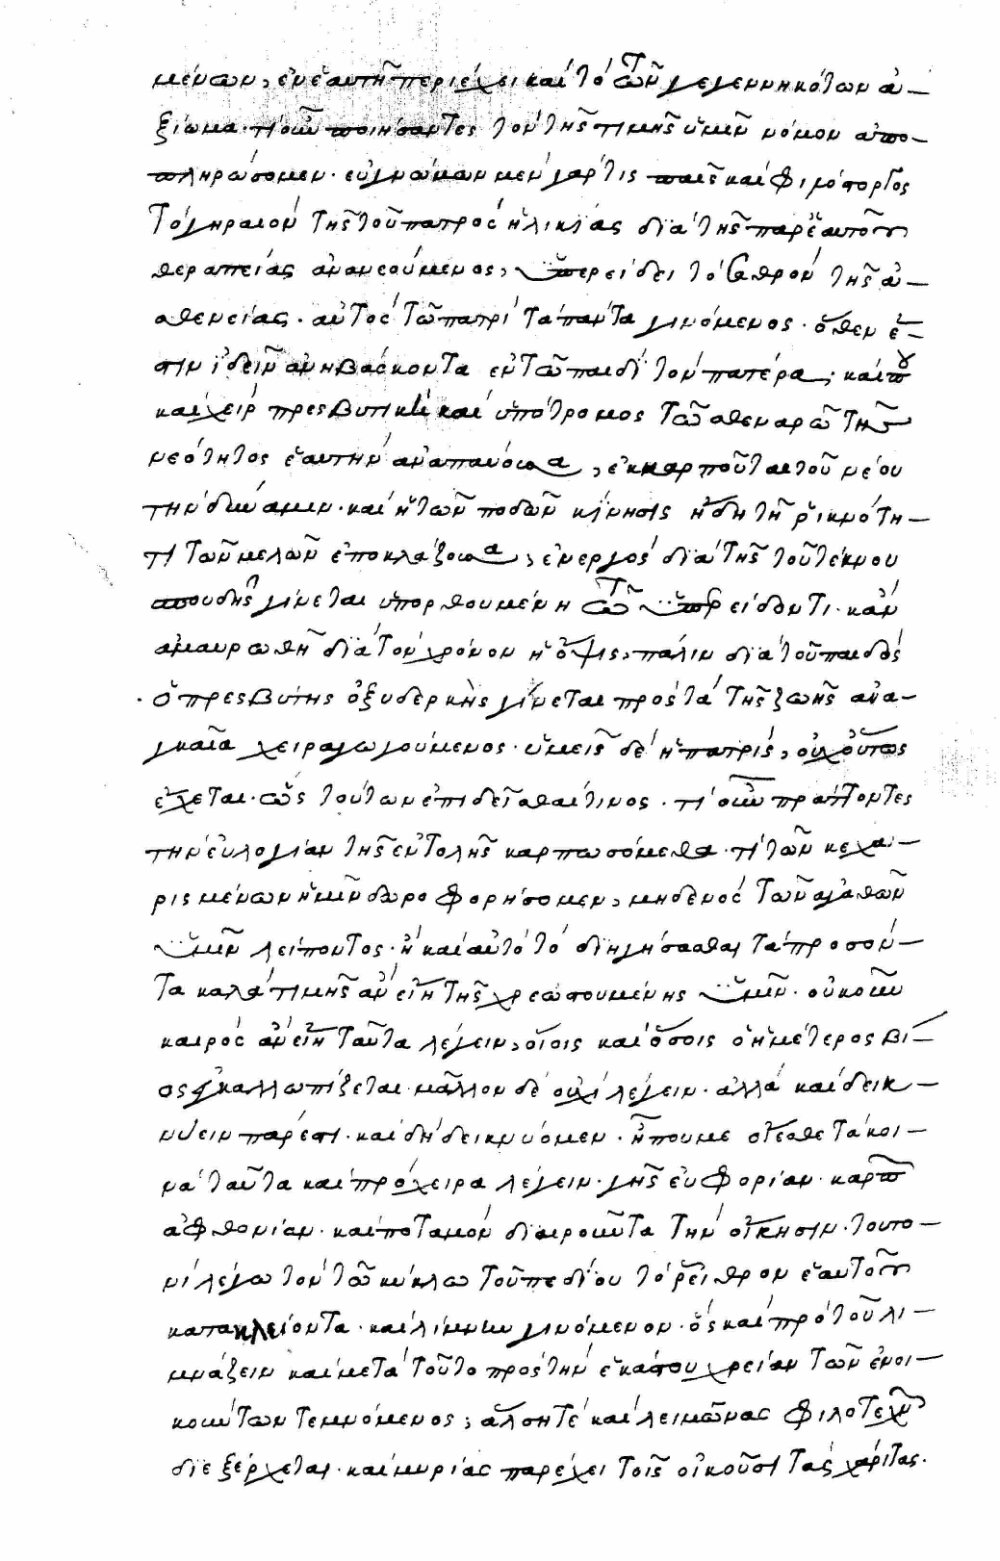 μένων, ἐν ἑαυτῇ περιέχει καὶ τὸ τῶν γεγεννηκότων ἀ-
ξίωμα· τί οὖν ποιήσαντες τὸν τῆς τιμῆς ὑμῖν νόμον ἀπο-
πληρώσομεν· εὐγνώμων μὲν γάρ τις παῖς καὶ φιλόστοργος
τὸ γηραιὸν τῆς τοῦ πατρὸς ἡλικίας διὰ τῆς παρ' ἑαυτοῦ
θεραπείας ἀνανεούμενος, ὑπερείδει τὸ σαθρὸν τῆς ἀ-
σθενείας· αὐτὸς τῷ πατρὶ τὰ πάντα γινόμενος· ὅθεν ἔ-
στιν ἰδεῖν ἀνηβάσκοντα ἐν τῷ παιδὶ τὸν πατέρα, κἄπου
καὶ χεὶρ πρεσβυτικὴ καὶ ὑπότρομος τῷ σθεναρῷ τῆς
νεότητος ἑαυτὴν ἀναπαύουσα, ἐκκαρποῦται τοῦ νέου
τὴν δύναμιν· καὶ ἡ τῶν ποδῶν κίνησις ἤδη τῇ ῥικνότη-
τι τῶν μελῶν ἐποκλάζουσα, ἐνεργὸς διὰ τῆς τοῦ τέκνου
σπουδῆς γίνεται ὑπορθουμένη τῷ ὑπερείδοντι· κἂν
ἀμαυρωθῇ διὰ τὸν χρόνον ἡ ὄψις, πάλιν διὰ τοῦ παιδὸς
ὁ πρεσβύτης ὀξυδερκὴς γίνεται πρὸς τὰ τῆς ζωῆς ἀνα-
γκαῖα χειραγωγούμενος· ὑμεῖς δὲ ἡ πατρίς, οὐχ οὕτως
ἔχεται· ὡς τούτων ἐπιδεῖσθαί τινος· τί οὖν πράττοντες
τὴν εὐλογίαν τῆς ἐντολῆς καρπωσόμεθα· τί τῶν κεχα-
ρισμένων ὑμῖν δωροφορήσομεν, μηδενὸς τῶν ἀγαθῶν
ὑμῖν λείποντος· ἢ καὶ αὐτὸ τὸ διηγήσασθαι τὰ προσόν-
τα καλὰ τιμῆς ἂν εἴη τῆς χρεωστουμένης ὑμῖν· οὐκοῦν
καιρὸς ἂν εἴη ταῦτα λέγειν, οἵοις καὶ ὅσοις ὁ ἡμέτερος βί-
ος ἐγκαλλωπίζεται· μᾶλλον δὲ οὐχὶ λέγειν· ἀλλὰ καὶ δεικ-
νύειν πάρεστι· καὶ δὴ δεικνύομεν· ἤπου με οἴεσθε τὰ κοι-
νὰ ταῦτα καὶ πρόχειρα λέγειν· γῆς εὐφορίαν· καρπῶν
ἀφθονίαν· καὶ ποταμὸν διαιροῦντα τὴν οἴκησιν· τουτο-
νὶ λέγω τὸν τῷ κύκλῳ τοῦ πεδίου τὸ ῥεῖθρον ἑαυτοῦ
κατακλείοντα· καὶ λίμνην γινόμενον· ὃς καὶ πρὸ τοῦ λι-
μνάζειν καὶ μετὰ τοῦτο πρὸς τὴν ἑκάστου χρείαν τῶν ἐνοι-
κούντων τεμνόμενος, ἄλση τὲ καὶ λειμῶνας φιλοτεχνῶν
διεξέρχεται· καὶ μυρίας παρέχει τοῖς οἰκοῦσι τὰς χάριτας.